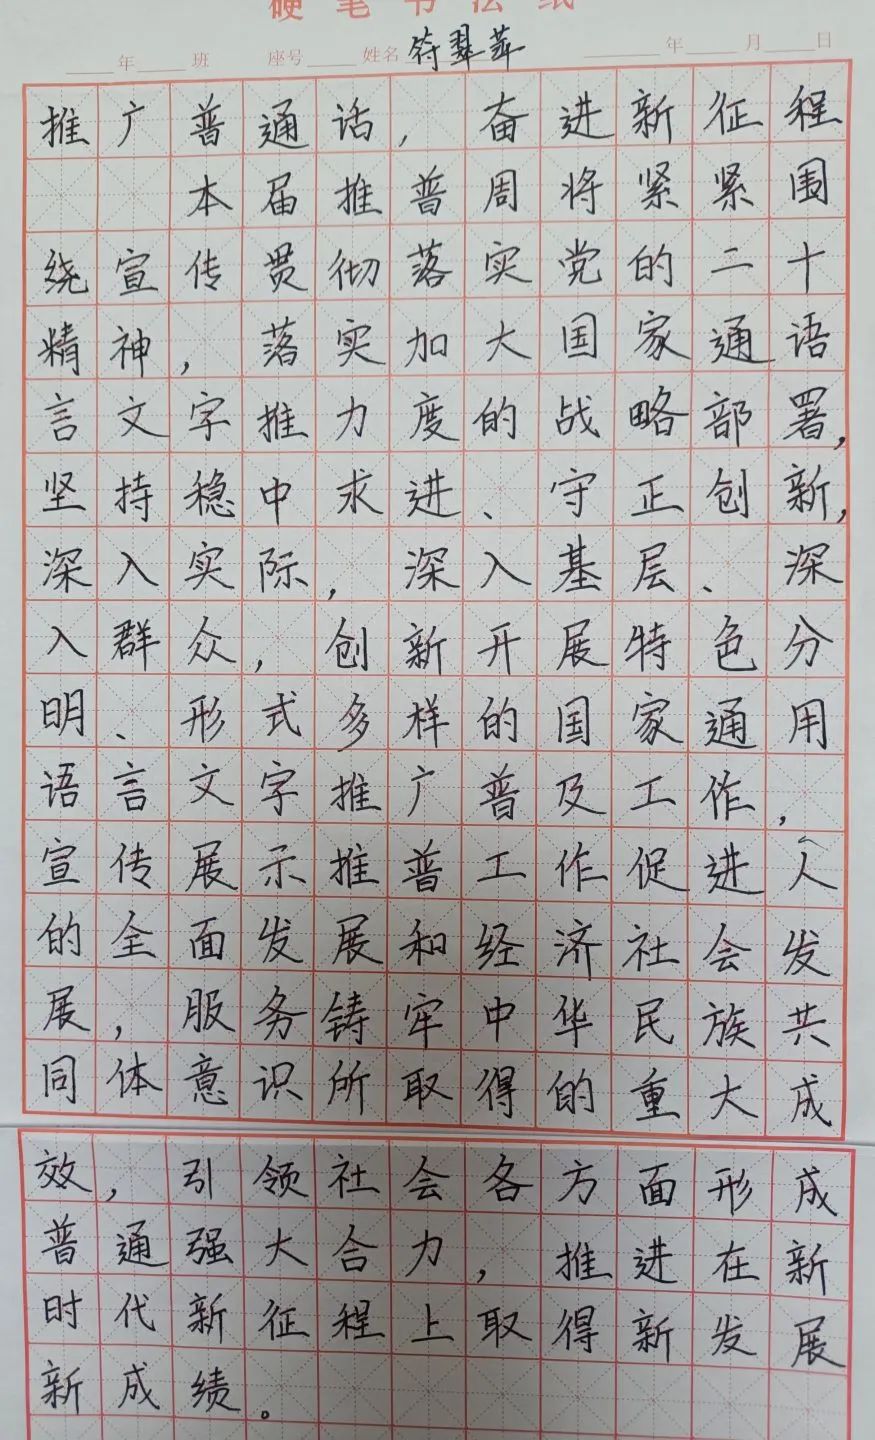 硬笔书法纸
____年____班 座号____姓名 符翠苹 ____年____月____日
推广普通话，奋进新征程
本届推普周将紧紧围
绕宣传贯彻落实党的二十
精神，落实加大国家通语
言文字推力度的战略部署，
坚持稳中求进、守正创新，
深入实际，深入基层、深
入群众，创新开展特色分
明、形式多样的国家通用
语言文字推广普及工作，
宣传展示推普工作促进人
的全面发展和经济社会发
展，服务铸牢中华民族共
同体意识所取得的重大成
效，引领社会各方面形成
普通强大合力，推进在新
时代新征程上取得新发展
新成绩。